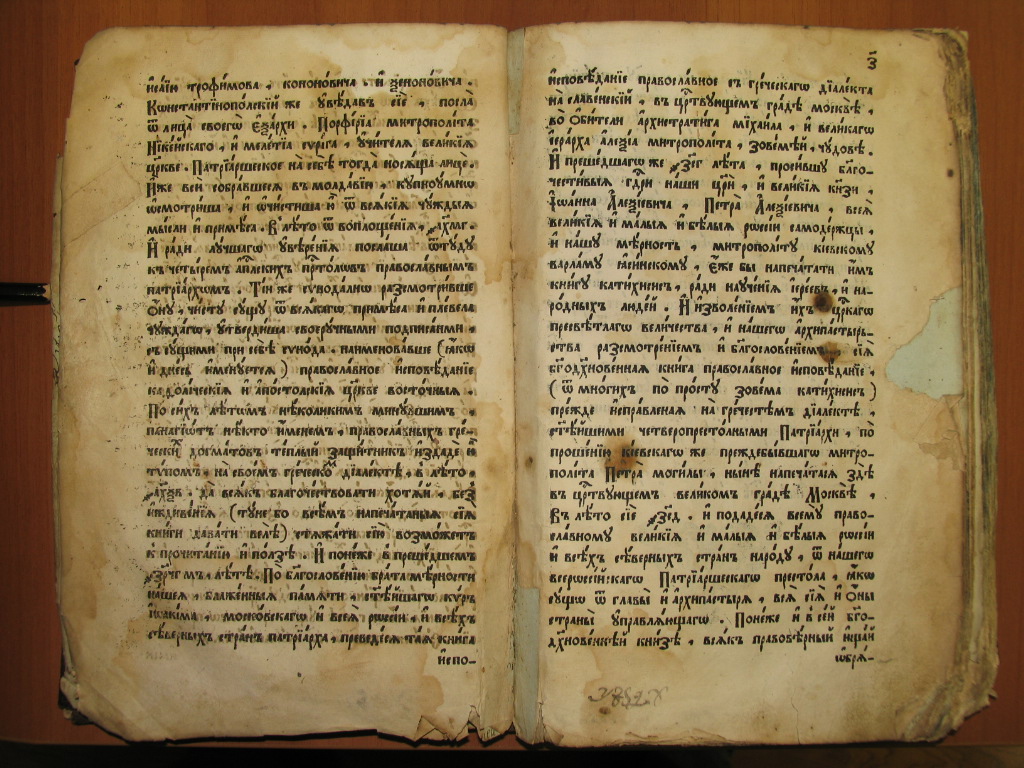 и҆са́їю трофи́мова , кононо́вича . и҆ ѯенони́вича .
Кѡнстантїнопо́лскїй же ᲂу҆вѣ́давъ сїѐ , посла̀
ѿ лица̀ своегѡ̀ є҆ѯа́рхи . Порфе́рїа митрополі́та
Нїке́йскаго , и҆ меле́тїа сѵ́рига , ᲂу҆чи́теля вели́кїѧ
цр҃кве . Патрїа́ршеское на себѣ̀ тогда̀ носѧ́ща лицѐ .
И҆̀же всѝ собра́вшесѧ въ молда́вїи , кꙋпноꙋ́мнѡ
ѡ҆смотри́ша , и҆ ѡ҆чи́стиша ю҆̀ ѿ всѧ́кїѧ чꙋ́ждыѧ
мы́сли и҆ примѣ́са . В лѣ́то ѿ воплоще́нїѧ , ҂а҃хмг .
И҆ ра́ди лꙋ́чшагѡ ᲂу҆вѣре́нїѧ посла́ша ѿтꙋ́дꙋ
къ четы́ремъ а҆пⷭ҇лскихъ прⷭ҇то́лѡвъ правосла́внымъ
патрїа́рхѡмъ . Ті́и же сѵнода́лнѡ разсмотри́вше
ѻ҆́нꙋ , чи́стꙋ сꙋ́щꙋ ѿ всѧ́кагѡ примѣ́са и҆ пле́вела
чꙋ́ждагѡ , ᲂу҆тверди́ша своерꙋ́чными подписа́нми ,
съ сꙋ́щими при себѣ̀ сѵно́да . наименова́вше ( ꙗ҆́кѡ
и҆ дне́сь и҆менꙋ́етсѧ ) правосла́вное и҆сповѣ́данїе
каѳоли́ческїѧ и҆ а҆по́столскїѧ цр҃кве восто́чныѧ .
По си́хъ лѣ́тѡмъ нѣ́коликимъ минꙋ́вшимъ ,
панагїѡ́тъ нѣ́кто и҆́менемъ , правосла́вныхъ гре́-
ческиⷯ догма́товъ те́плый защи́тникъ и҆здадѐ и҆̀
тѵ́помъ , на свое́мъ гре́ческоⷨ дїале́ктѣ , в лѣ́то .
҂а҃хѯв . да всѧ́къ благоче́ствовати хотѧ́й , без̾
и҆ждиве́нїѧ ( тꙋ́не бо всѣ́мъ напеча́таныѧ сїѧ̑
кни́ги дава́ти велѣ̀ ) стѧжа́ти сїю̀ возмо́жетъ
к прочита́нїю и҆ по́лзѣ . И҆ поне́же в преше́дшемъ
҂зр҃чг мъ , лѣ́тѣ . По бл҃гослове́нїи бра́та мѣ́рности
на́шеѧ , блаже́нныѧ па́мѧти , ст҃ѣ́йшагѡ кѵ́ръ
і҆ѡаки́ма , моско́вскагѡ и҆ всеѧ̀ рѡссі́и , и҆ всѣ́хъ
сѣ́верныхъ стра́нъ патрїа́рха , преведе́сѧ таѧ̀ кни́га
и҆спо-
з҃
и҆сповѣ́данїе правосла́вное съ гре́ческагѡ дїале́кта
на славе́нскїй , въ црⷭ҇твꙋющемъ гра́дѣ москвѣ̀ ,
во ѻ҆би́тели а҆рхистрати́га мїхаи́ла , и҆ вели́кагѡ
і҆ера́рха а҆леѯі́а митрополі́та , зово́мѣй , чꙋ́довѣ .
И҆ преше́дшагѡ же ҂зсг лѣ́та , проси́вшꙋ бл҃го-
чести́выѧ гдⷭ҇ри на́ши цр҃и̑ , и҆ вели́кїѧ кн҃зи ,
І҆ѡа́нна А҆леѯі́евича , Петра̀ А҆леѯі́евича , всеѧ̀
вели́кїѧ и҆ ма́лыѧ и҆ бѣ́лыѧ рѡссі́и самоде́ржцы ,
и҆ на́шꙋ мѣ́рность , митрополі́тꙋ кі́евскомꙋ
варла́мꙋ ꙗ҆си́нскомꙋ , є҆́же бы напеча́тати и҆̀мъ
кни́гꙋ катихи́сисъ , ра́ди наꙋче́нїѧ і҆ере́евъ , и҆ на-
ро́дныхъ люде́й . И҆ и҆зволе́нїемъ и҆́хъ црⷭ҇кагѡ
пресвѣ́тлагѡ вели́чества , и҆ на́шегѡ а҆рхипа́стырь-
ства разсмотре́нїемъ и҆ бл҃гослове́нїемъ сїѧ̀
бг҃одхнове́нная кни́га правосла́вное и҆сповѣ́данїе .
( ѿ мно́гихъ по про́стꙋ зово́ма катихи́сисъ )
пре́жде и҆спра́вленая на гре́честѣмъ дїале́ктѣ ,
ст҃ѣ́йшими четверопресто́лными Патрїа́рхи , по
проше́нїю кі́евскагѡ же преждебы́вшагѡ митро-
полі́та Петра̀ моги́лы , ны́нѣ напеча́тасѧ здѣ̀
въ црⷭ҇твꙋющемъ вели́комъ гра́дѣ Москвѣ̀ ,
Въ лѣ́то сїѐ ҂зсд . и҆ подаде́сѧ всемꙋ̀ право-
сла́вномꙋ вели́кїѧ и҆ ма́лыѧ и҆ бѣ́лыѧ рѡссі́и
и҆ всѣ́хъ сѣ́верныхъ стра́нъ наро́дꙋ , ѿ на́шегѡ
всерѡссі́йскагѡ Патрїа́ршескагѡ престо́ла , ꙗ҆́кѡ
сꙋ́щꙋ ѿ главы̀ и҆ а҆рхипа́стырѧ , всѧ̑ сїѧ̑ и҆ ѻ҆́ны
страны̑ ᲂу҆правлѧ́ющагѡ . Поне́же и҆ в се́й бг҃о-
дхнове́ннѣй кни́зѣ , всѧ́къ правовѣ́рный и҆щѧ́й
ѡ҆брѧ́-